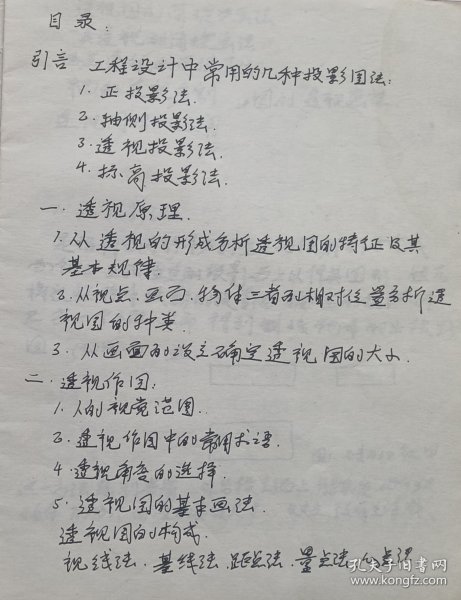 目录.
引言 工程设计中常用的几种投影图法:
1. 正投影法.
2. 轴侧投影法.
3. 透视投影法.
4. 标高投影法.
一. 透视原理.
1. 从透视的形成分析透视图的特征及其
基本规律.
2. 从视点、画面、物体三者的相对位置分析透
视图的种类.
3. 从画面的设立确定透视图的大小.
二. 透视作图:
1. 人的视觉范围.
3. 透视作图中的常用术语.
4. 透视角度的选择.
5. 透视图的基本画法.
透视图的构成.
视线法、基线法、距点法、量点法、
孔夫子旧书网
www.kongfz.com